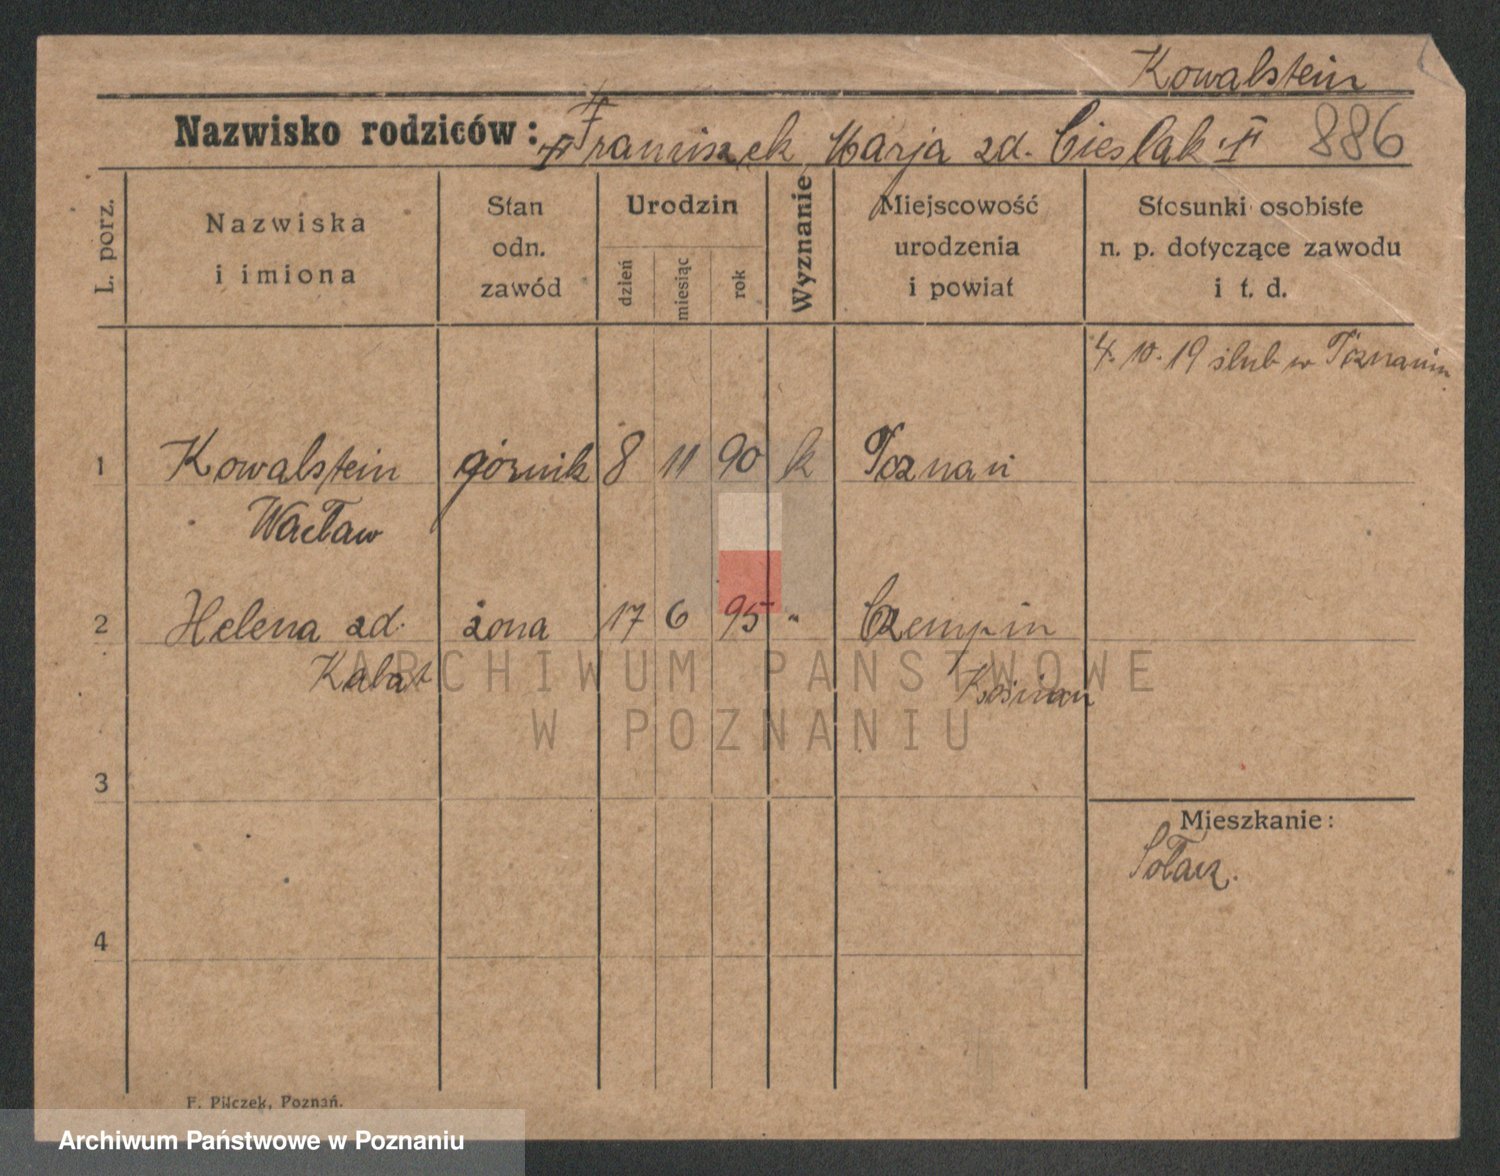 Kowalstein
Nazwisko rodziców: Franciszek Marja zd. Cieslak 886
L. porz.
Nazwiska
i imiona
Stan
odn.
zawód
Urodzin
dzień
miesiąc
rok
Wyznanie
Miejscowość
urodzenia
i powiat
Stosunki osobiste
n. p. dotyczące zawodu
i t. d.
4. 10. 19 ślub w Poznaniu
1 Kowalstein górnik 8 11 90 k Poznań
Wacław
2 Helena zd. żona 17 6 95 " Czempin
Kabat
3
Mieszkanie:
Sołacz.
4
F. Pilczek, Poznań.
ARCHIWUM PAŃSTWOWE
W POZNANIU
Archiwum Państwowe w Poznaniu